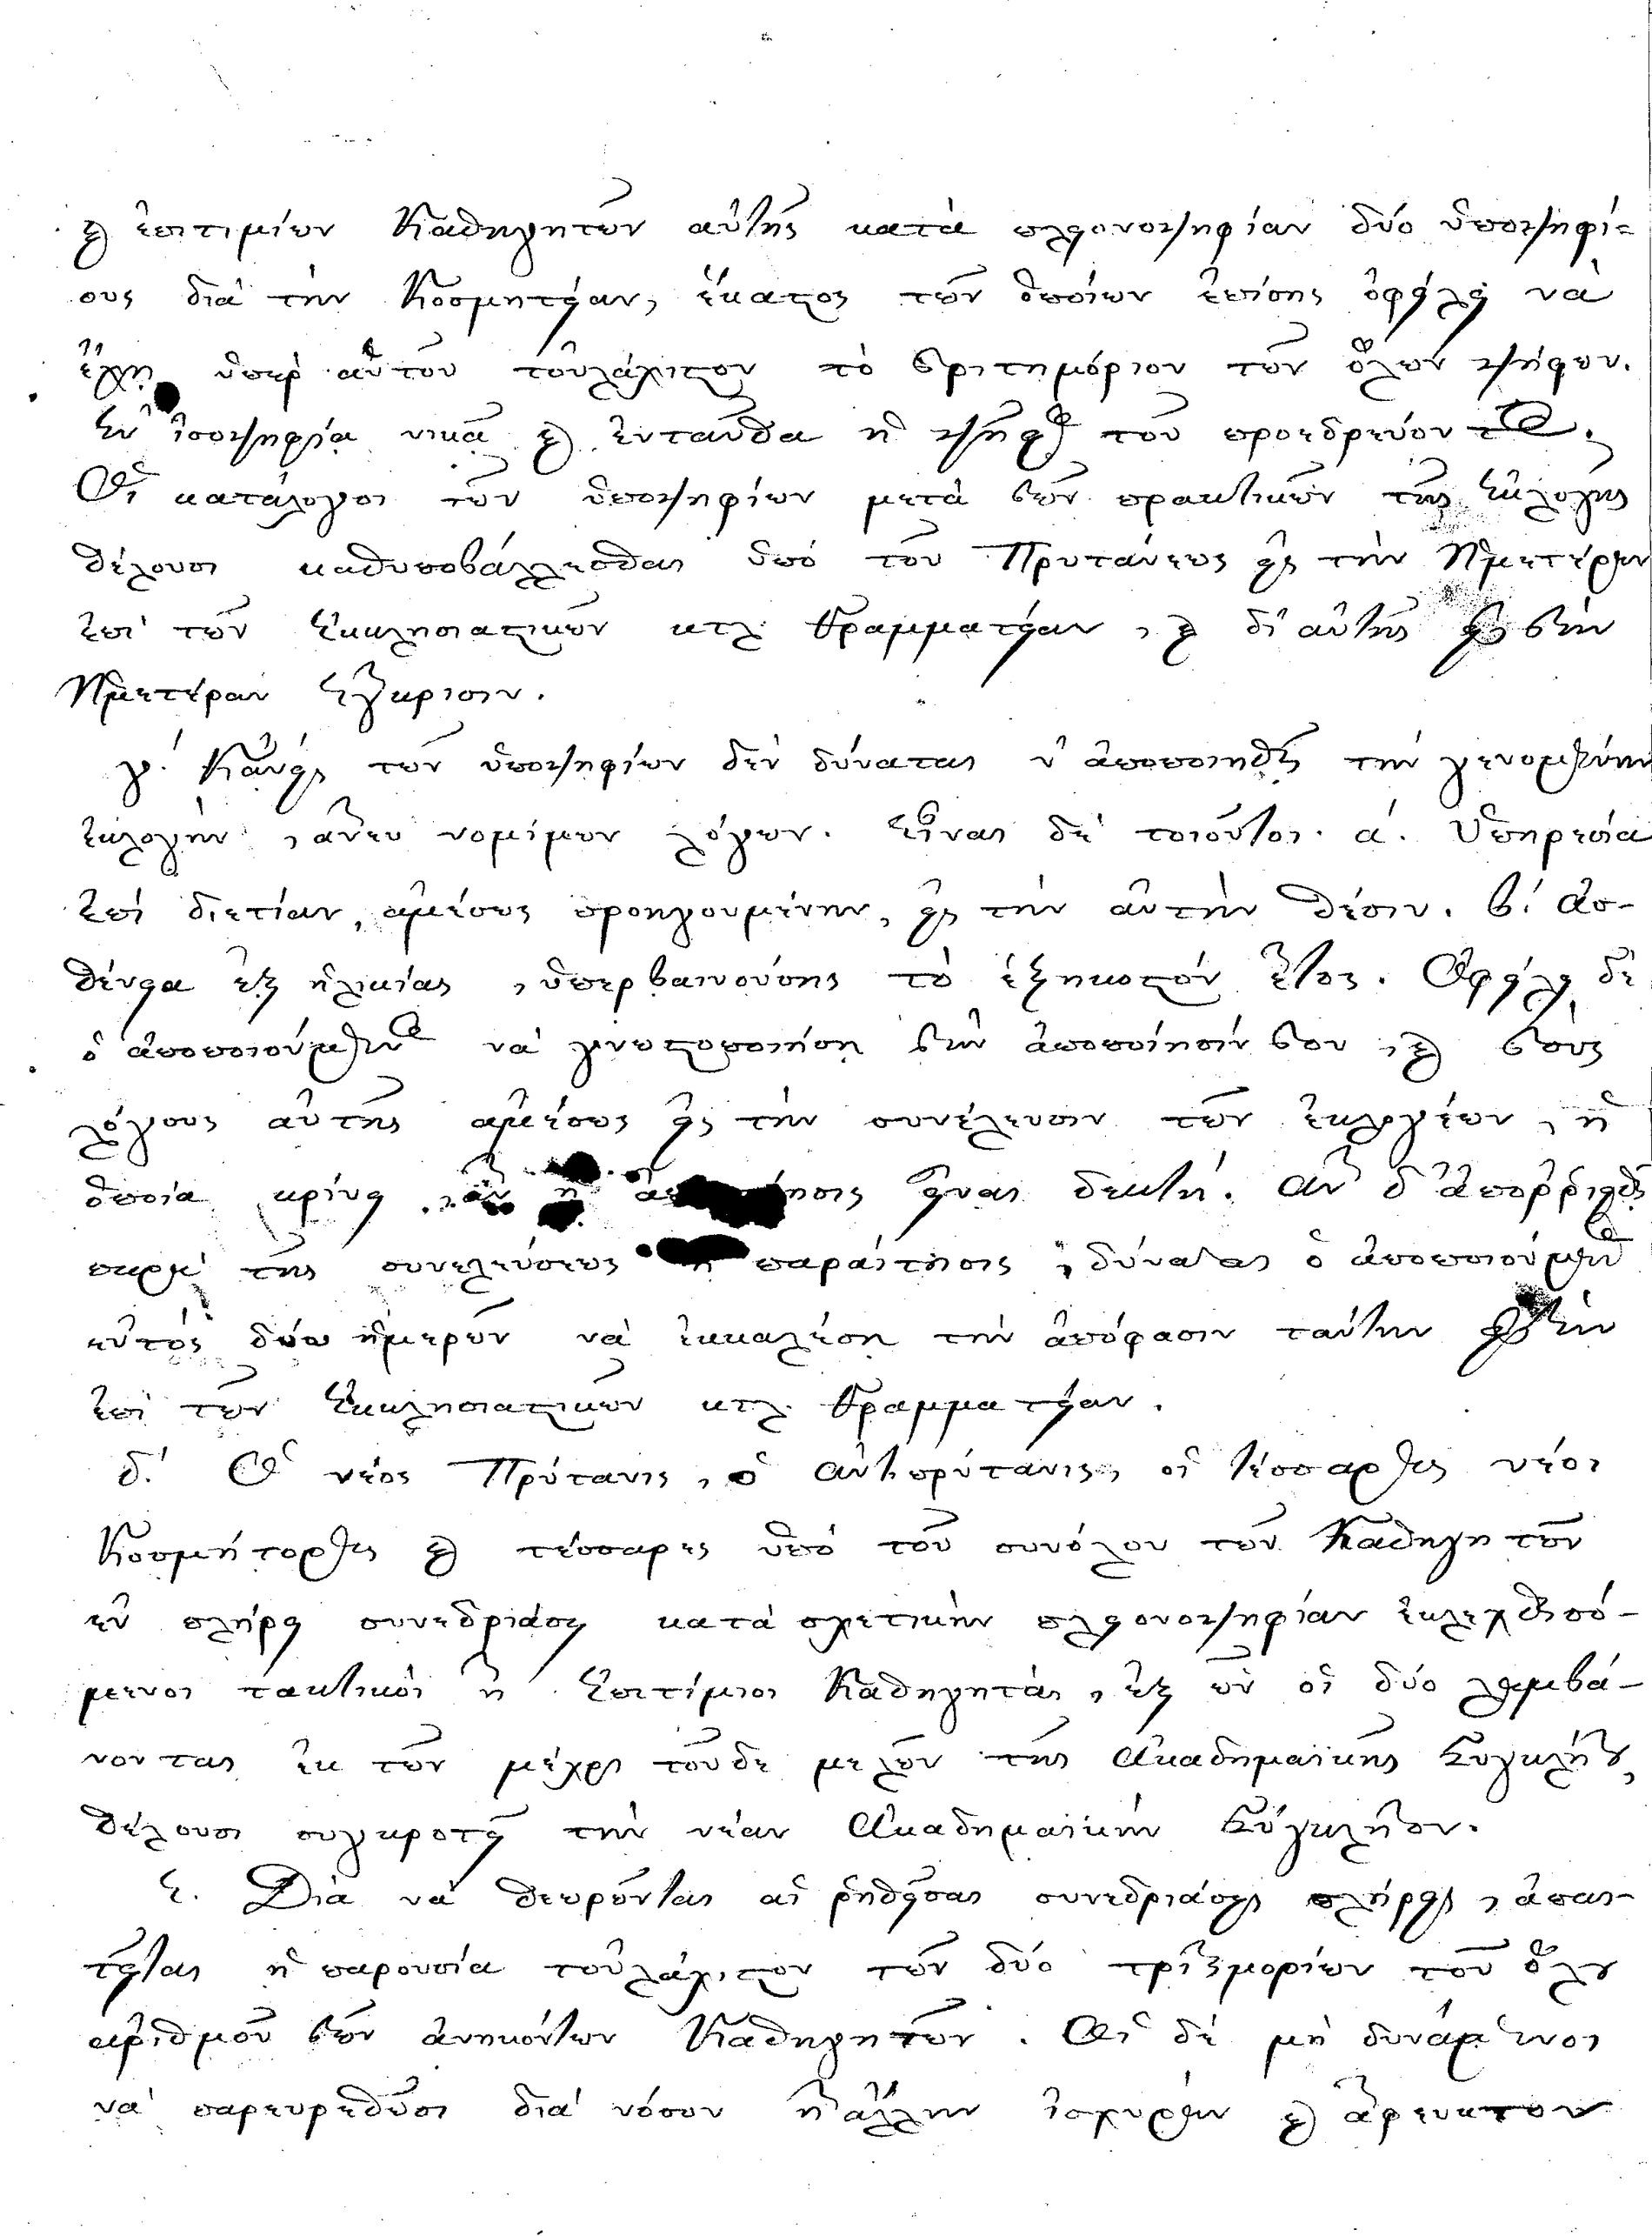 καὶ ἐπιτιμίων Καθηγητῶν αὐτῆς κατὰ πλειονοψηφίαν δύο ὑποψηφί=
ους διὰ τὴν Κοσμητείαν, ἕκαστος τῶν ὁποίων ἐπίσης ὀφείλει νὰ
ἔχῃ ὑπὲρ αὑτοῦ τοὐλάχιστον τὸ τριτημόριον τῶν ὅλων ψήφων.
Ἐν ἰσοψηφίᾳ νικᾷ καὶ ἐνταῦθα ἡ ψῆφος τοῦ προεδρεύοντος.
Οἱ κατάλογοι τῶν ὑποψηφίων μετὰ τῶν πρακτικῶν τῆς ἐκλογῆς
θέλουσι καθυποβάλλεσθαι ὑπὸ τοῦ Πρυτάνεως εἰς τὴν Ἡμετέραν
ἐπὶ τῶν Ἐκκλησιαστικῶν κτλ. Γραμματείαν, καὶ δι' αὐτῆς εἰς τὴν
Ἡμετέραν ἔγκρισιν.
γ'. Κἀνεὶς τῶν ὑποψηφίων δὲν δύναται ν' ἀποποιηθῇ τὴν γενομένην
ἐκλογὴν, ἄνευ νομίμων λόγων. Εἶναι δὲ τοιοῦτοι· α'. Ὑπηρεσία
ἐπὶ διετίαν, ἀμέσως προηγουμένην, εἰς τὴν αὐτὴν θέσιν. β'. Ἀσ-
θένεια ἐξ ἡλικίας, ὑπερβαινούσης τὸ ἑξηκοστὸν ἔτος. Ὀφείλει δὲ
ὁ ἀποποιούμενος νὰ γνωστοποιήσῃ τὴν ἀποποίησίν του, καὶ τοὺς
λόγους αὐτῆς ἀμέσως εἰς τὴν συνέλευσιν τῶν ἐκλογέων, ἡ
ὁποία κρίνει, ἂν ἡ ἀποποίησις εἶναι δεκτή. Ἂν δ' ἀπορριφθῇ
παρὰ τῆς συνελεύσεως ἡ παραίτησις, δύναται ὁ ἀποποιούμενος
ἐντὸς δύω ἡμερῶν νὰ ἐκκαλέσῃ τὴν ἀπόφασιν ταύτην εἰς τὴν
ἐπὶ τῶν Ἐκκλησιαστικῶν κτλ. Γραμματείαν.
δ'. Ὁ νέος Πρύτανις, ὁ ἀντιπρύτανις, οἱ τέσσαρες νέοι
Κοσμήτορες καὶ τέσσαρες ὑπὸ τοῦ συνόλου τῶν Καθηγητῶν
ἐν πλήρει συνεδριάσει κατὰ σχετικὴν πλειονοψηφίαν ἐκλεχθησό-
μενοι τακτικοὶ ἢ ἐπιτίμιοι Καθηγηταὶ, ἐξ ὧν οἱ δύο λαμβά-
νονται ἐκ τῶν μέχρι τοῦδε μελῶν τῆς Ἀκαδημαϊκῆς Συγκλήτου,
θέλουσι συγκροτεῖ τὴν νέαν Ἀκαδημαϊκὴν Σύγκλητον.
ε. Διὰ νὰ θεωρῶνται αἱ ῥηθεῖσαι συνεδριάσεις πλήρεις, ἀπαι-
τεῖται ἡ παρουσία τοὐλάχιστον τῶν δύο τριτημορίων τοῦ ὅλου
ἀριθμοῦ τῶν ἀνηκόντων Καθηγητῶν. Οἱ δὲ μὴ δυνάμενοι
νὰ παρευρεθῶσι διὰ νόσον ἢ ἄλλην ἰσχυρὰν καὶ ἄφευκτον